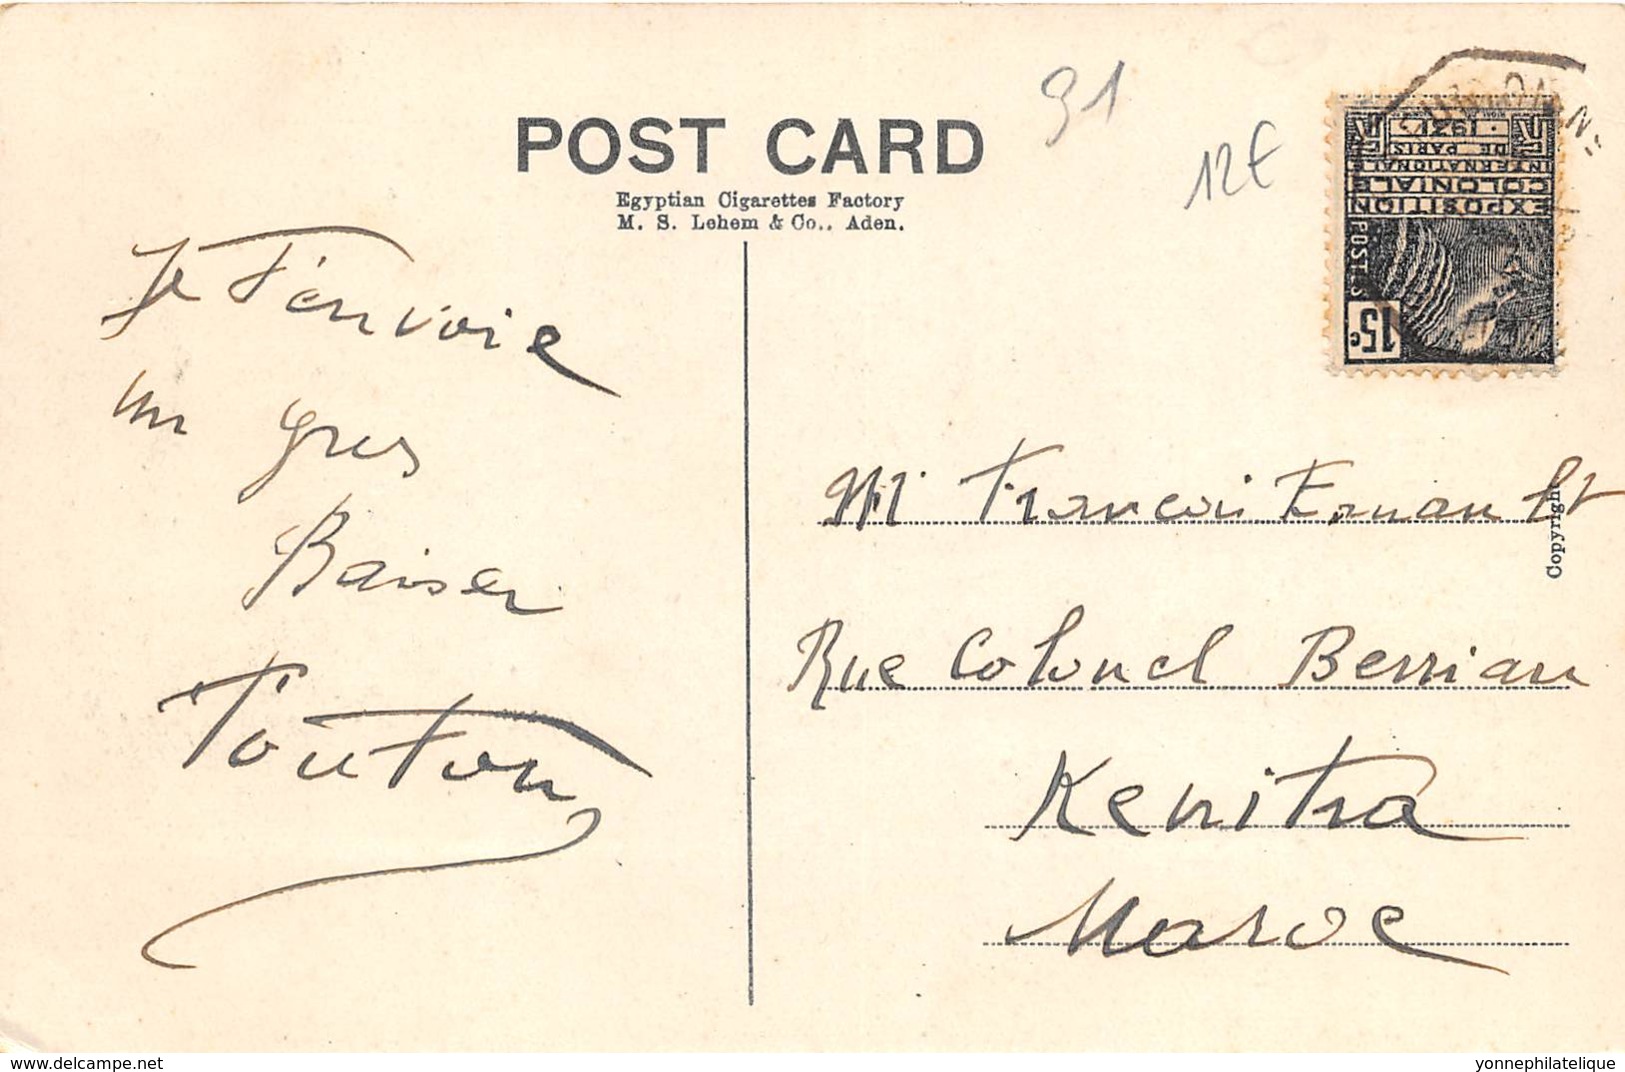 POST CARD
Egyptian Cigarettes Factory
M. S. Lehem & Co., Aden.
91
12€
EXPOSITION
COLONIALE
INTERNATIONALE
DE PARIS
·1931·
POSTES
15c
Je t'envoie
un gros
Baiser
Touton
Mr Francois Ernault
Rue Colonel Berriau
Kenitra
Maroc
Copyright
delcampe.net
yonnephilatelique